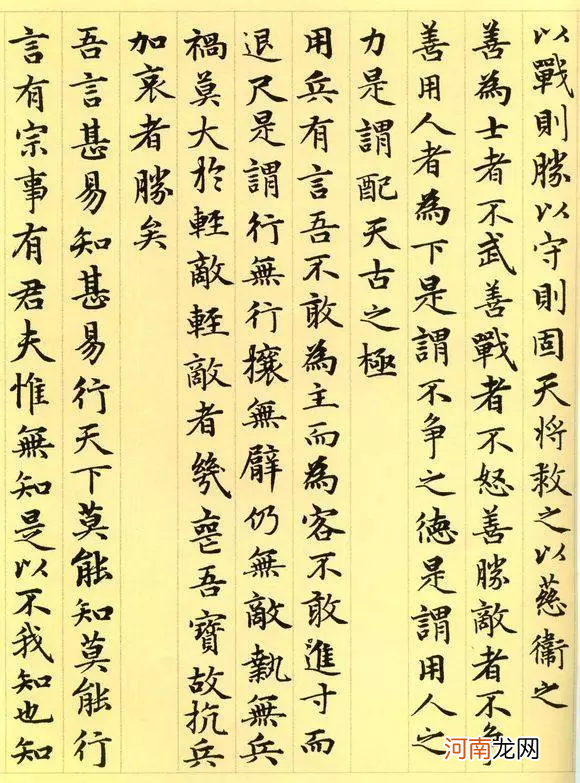 以戰則勝以守則固天將救之以慈衞之
善為士者不武善戰者不怒善勝敵者不争
善用人者為下是謂不争之德是謂用人之
力是謂配天古之極
用兵有言吾不敢為主而為客不敢進寸而
退尺是謂行無行攘無臂仍無敵執無兵
禍莫大於輕敵輕敵者幾喪吾寶故抗兵
加哀者勝矣
吾言甚易知甚易行天下莫能知莫能行
言有宗事有君夫惟無知是以不我知也知
河南龙网